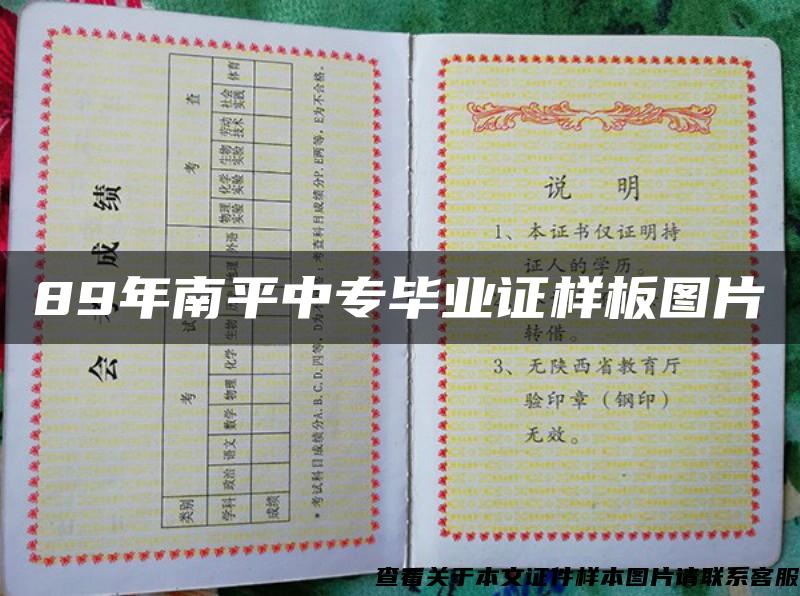 会 成 绩
类别 考 试 考 查
学科 政治 语文 数学 物理 化学 生物 地理 外语 物理实验 化学实验 生物实验 劳动技术 社会实践 体育
成绩
*考试科目成绩分A.B.C.D.四等，D为不 ：考查科目成绩分P.E两等，E为不合格。
说 明
1、本证书仅证明持
证人的学历。
转借。
3、无陕西省教育厅
验印章（钢印）
无效。
89年南平中专毕业证样板图片
查看关于本文证件样本图片请联系客服